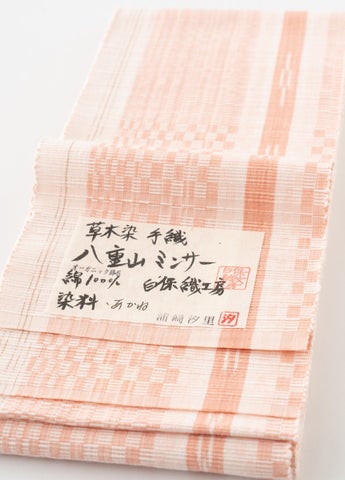 草木染 手織
八重山 ミンサー
オーガニック綿糸
綿100% 白保 織工房
染料・あかね
浦崎汐里
汐